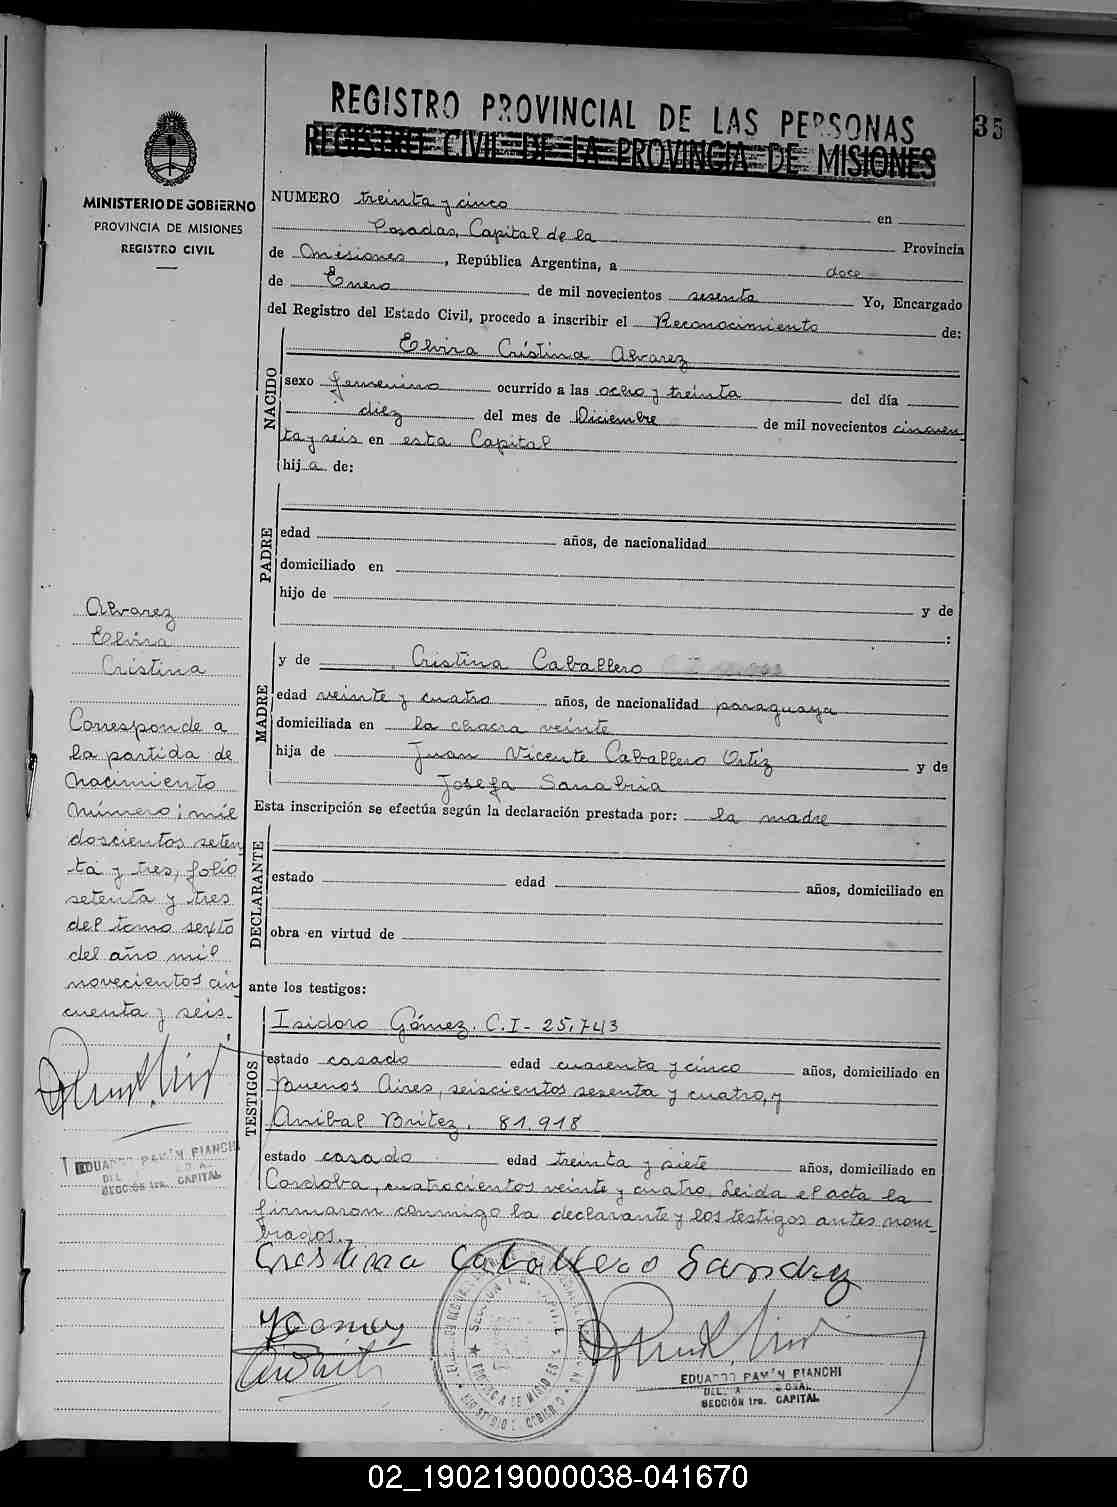 REGISTRO PROVINCIAL DE LAS PERSONAS
REGISTRO CIVIL DE LA PROVINCIA DE MISIONES
35
MINISTERIO DE GOBIERNO
PROVINCIA DE MISIONES
REGISTRO CIVIL
NUMERO treinta y cinco en
Posadas, Capital de la Provincia
de Misiones, República Argentina, a doce
de Enero de mil novecientos sesenta Yo, Encargado
del Registro del Estado Civil, procedo a inscribir el Reconocimiento de:
NACIDO
Elvira Cristina Alvarez
sexo femenino ocurrido a las ocho y treinta del día
diez del mes de Diciembre de mil novecientos cincuen
ta y seis en esta Capital
hija de:
PADRE
edad años, de nacionalidad
domiciliado en
hijo de y de
:
MADRE
y de Cristina Caballero
edad veinte y cuatro años, de nacionalidad paraguaya
domiciliada en la chacra veinte
hija de Juan Vicente Caballero Ortiz y de
Josefa Sanabria
Esta inscripción se efectúa según la declaración prestada por: la madre
DECLARANTE
estado edad años, domiciliado en
obra en virtud de
ante los testigos:
TESTIGOS
Isidoro Gómez. C.I- 25,743
estado casado edad cuarenta y cinco años, domiciliado en
Buenos Aires, seiscientos sesenta y cuatro, y
Anibal Britez. 81.918
estado casado edad treinta y siete años, domiciliado en
Cordoba, cuatrocientos veinte y cuatro. Leida el acta la
firmaron conmigo la declarante y los testigos antes nom-
brados.
Cristina Caballero
EDUARDO RAMÓN BIANCHI
SECCIÓN 1ra. CAPITAL
Alvarez
Elvira
Cristina
Corresponde a
la partida de
nacimiento
número; mil
doscientos seten
ta y tres, folio
setenta y tres
del tomo sexto
del año mil
novecientos cin
cuenta y seis.
EDUARDO RAMÓN BIANCHI
SECCIÓN 1ra. CAPITAL
02_190219000038-041670